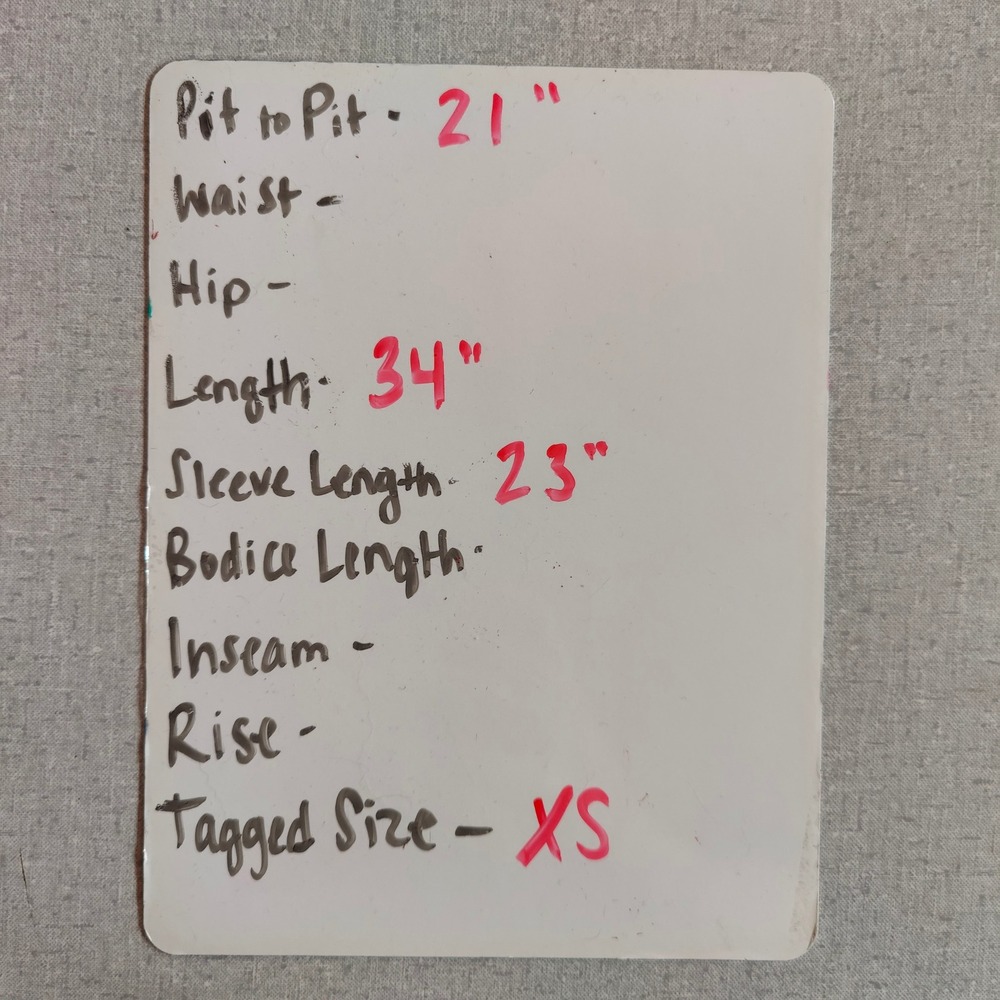 Pit to Pit - 21"
Waist -
Hip -
Length - 34"
Sleeve Length - 23"
Bodice Length -
Inseam -
Rise -
Tagged Size - XS